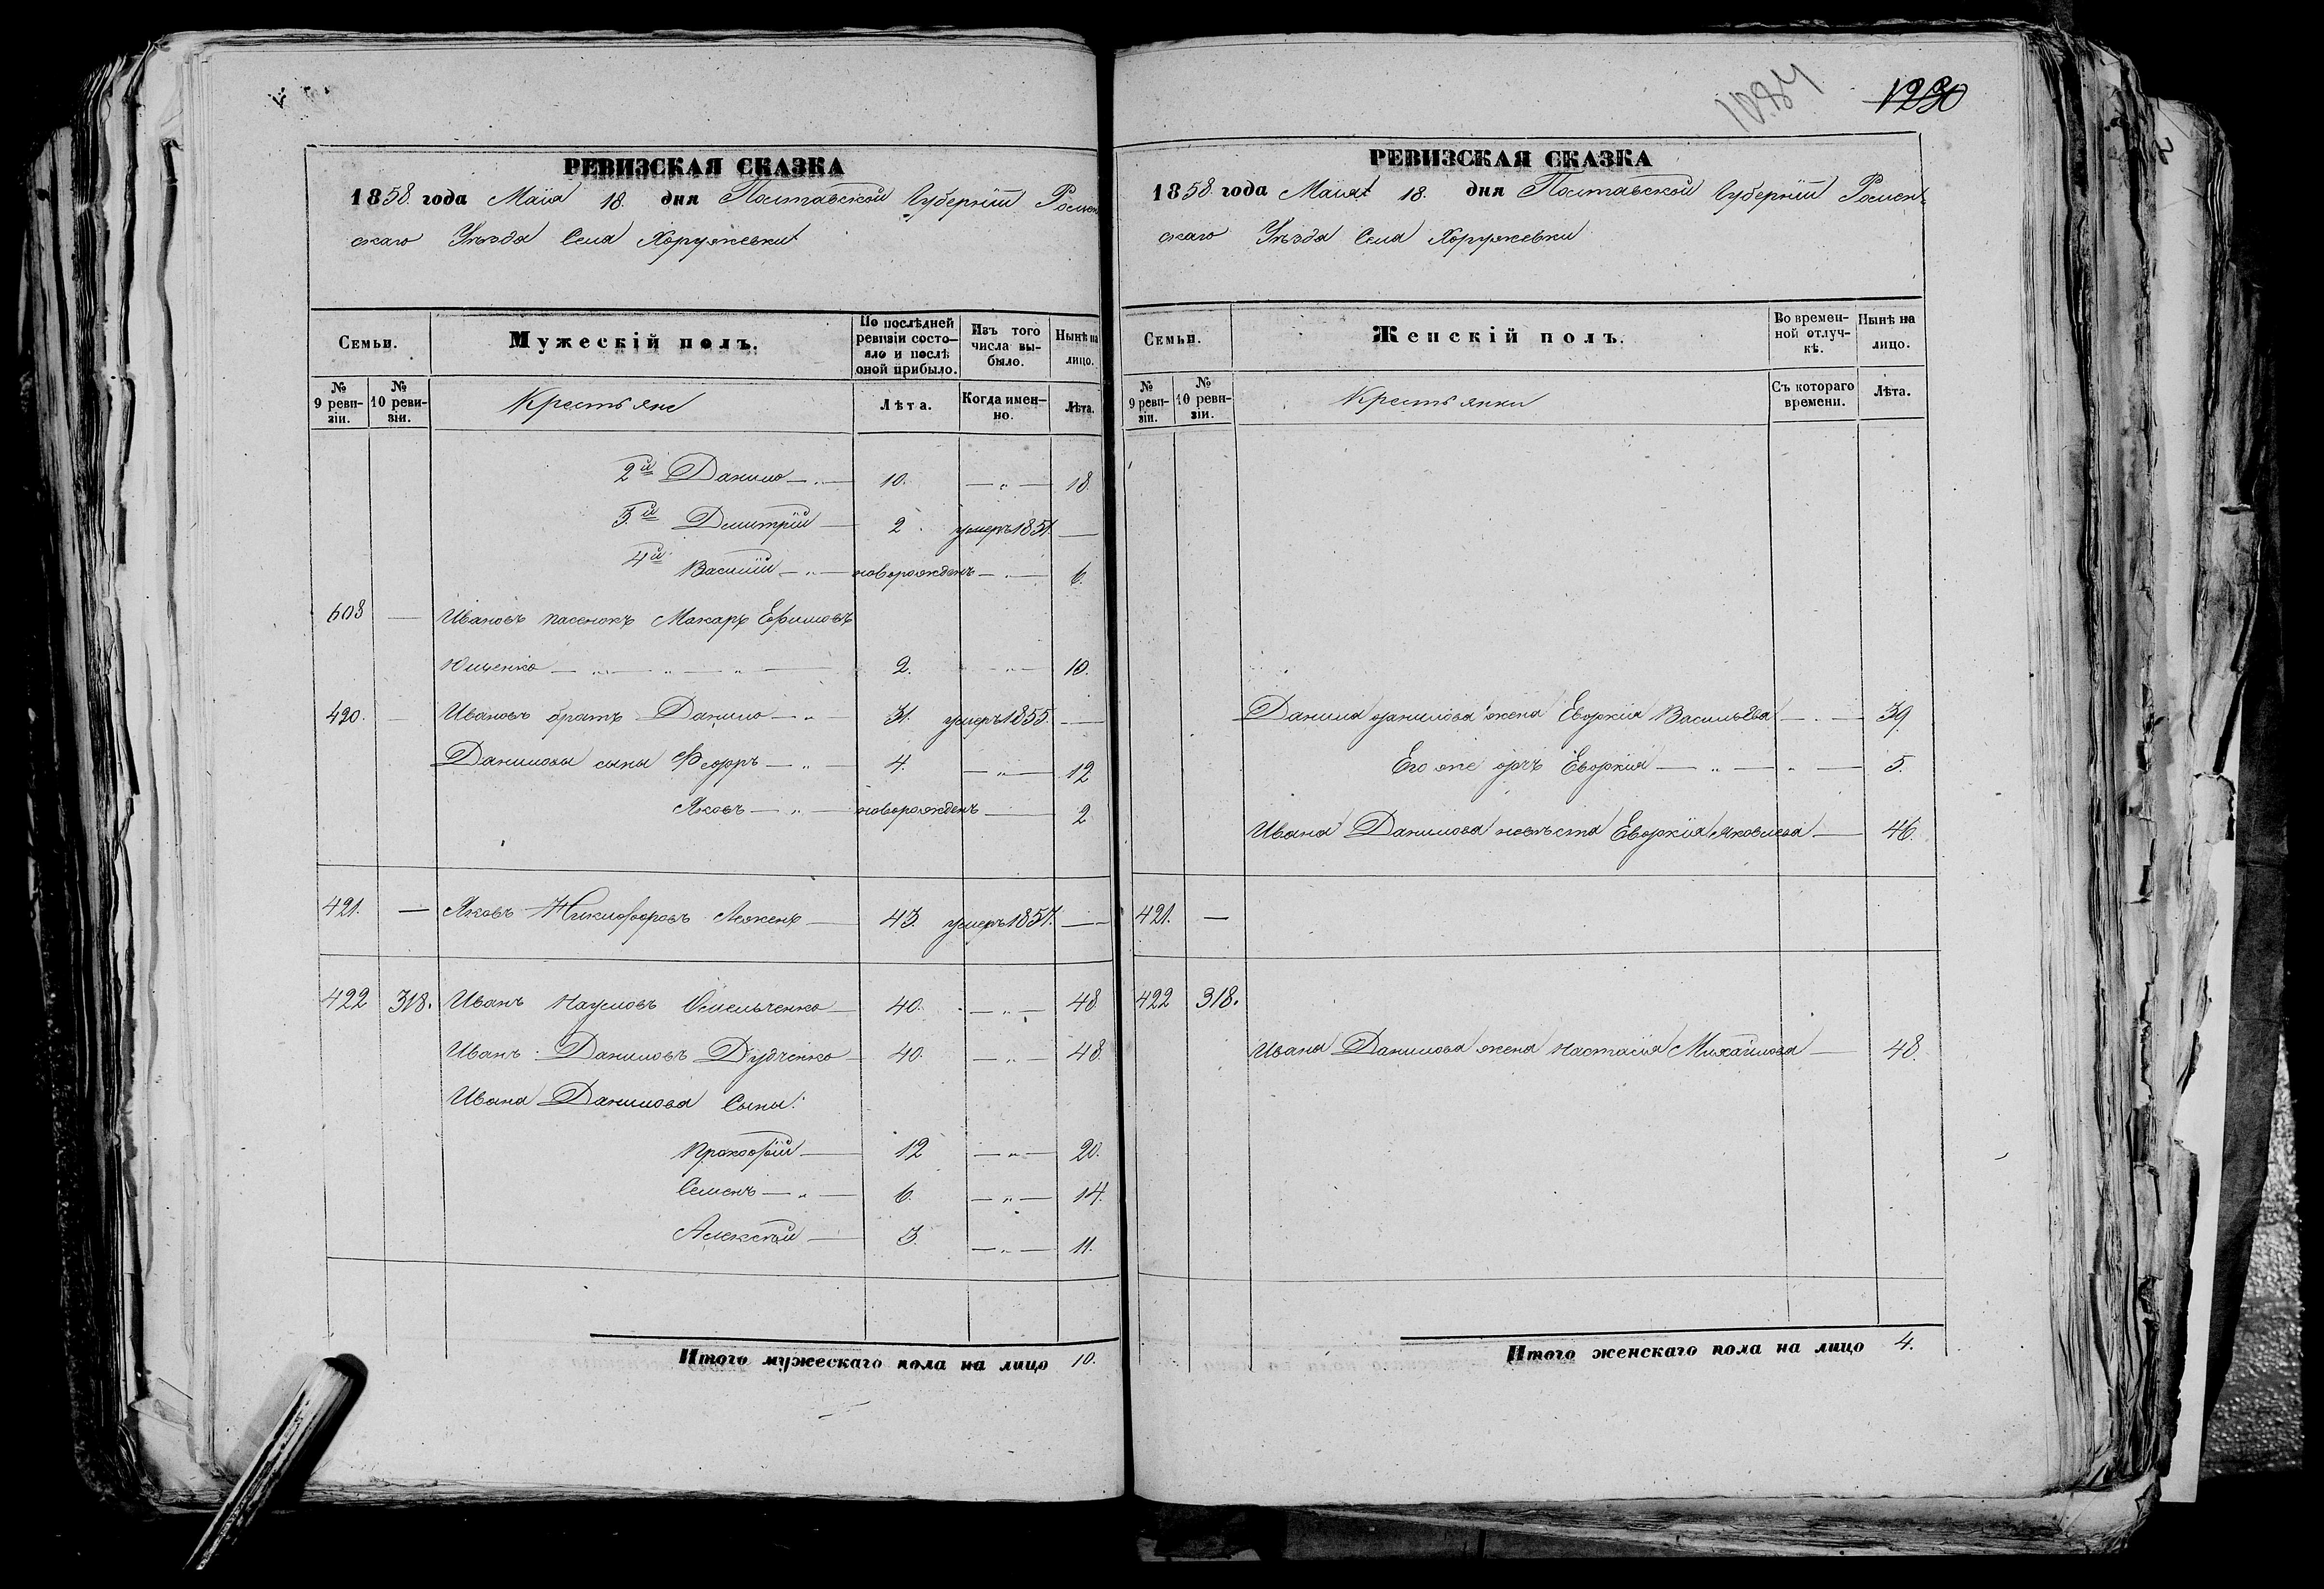 1230
РЕВИЗСКАЯ СКАЗКА
1858. года Маія 18. дня Полтавской Губерніи Ромен
скаго Уѣзда Села Хоружевки
Семьи. Мужескій полъ. По послѣдней ревизіи состояло и послѣ оной прибыло. Изъ того числа выбыло. Нынѣ на лицо.
№ 9 ревизіи. № 10 ревизіи. Крестьяне Лѣта. Когда именно. Лѣта.
2й Данило — „ — 10. — „ — 18.
3.й Дмитрій — 2. умеръ 1851. —
4й Василій — „ — новорожденъ — „ — 6.
608 — Ивановъ пасенокъ Макаръ Ефимовъ
Ющенко — „ — „ — „ — 2. — „ — 10.
420. — Ивановъ братъ Данило — „ 31. умеръ 1855. —
Данилова сыны Федоръ — „ — 4. — „ — 12
Яковъ — „ — новорожденъ — 2
421. — Яковъ Никифоровъ — 43. умеръ 1857. —
422 318. Иванъ Наумовъ Омельченко — 40. — „ — 48
Иванъ Даниловъ Дудченко — 40. — „ — 48
Ивана Данилова Сыны:
Прокофій — 12 — „ — 20.
Семенъ — „ — 6. — „ — 14.
Алексѣй — 3. — „ — 11.
Итого мужескаго пола на лицо 10.
РЕВИЗСКАЯ СКАЗКА
1858. года Маія 18. дня Полтавской Губерніи Ромен
скаго Уѣзда Села Хоружевки
Семьи. Женскій полъ. Во временной отлучкѣ. Нынѣ на лицо.
№ 9 ревизіи. № 10 ревизіи. Крестьянки Съ котораго времени. Лѣта.
Данила Данилова жена Евдокія Васильева — „ — 39.
Его же дочь Евдокія — „ — „ — 5.
Ивана Данилова невѣста Евдокія Яковлева — 46.
421. —
422 318.
Ивана Данилова жена Настасія Михайлова — 48.
Итого женскаго пола на лицо 4.